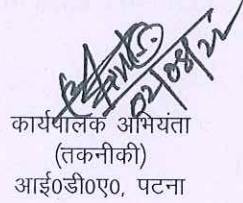 02/08/22
कार्यपालक अभियंता
(तकनीकी)
आई0डी0ए0, पटना